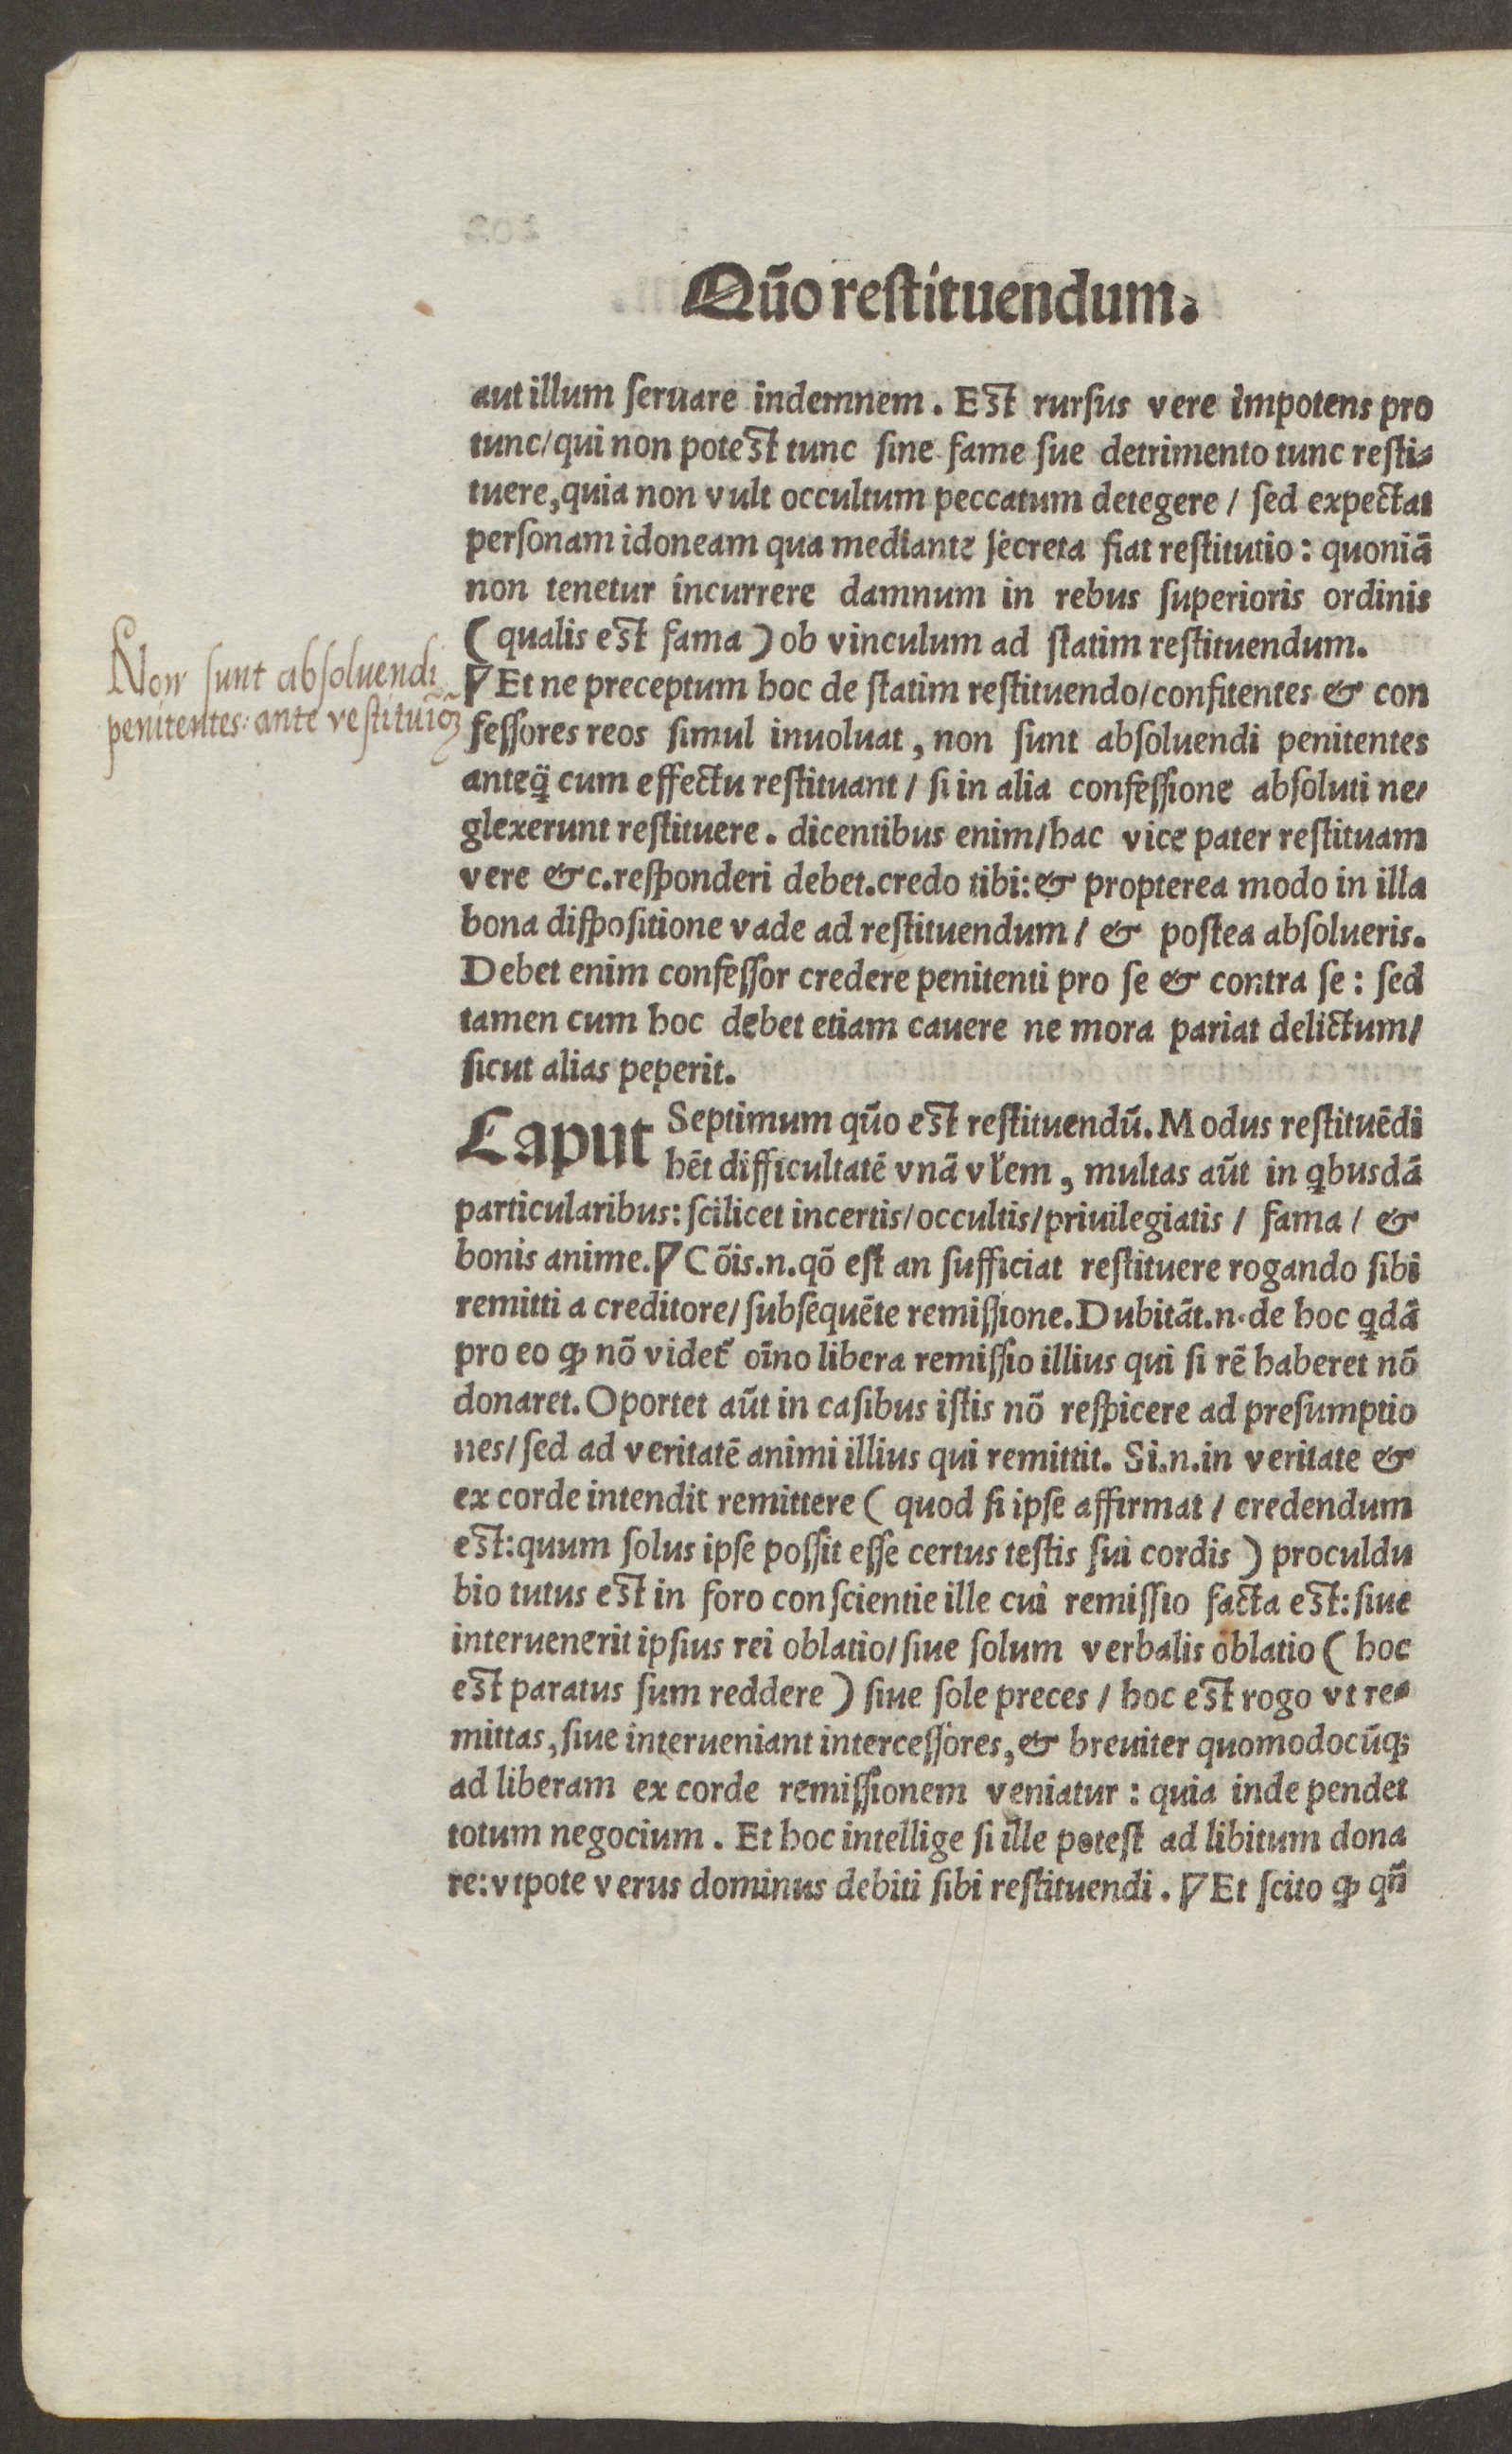 Qũo restituendum.
aut illum seruare indemnem. Est rursus vere impotens pro
tunc/qui non potest tunc sine fame sue detrimento tunc resti⸗
tuere, quia non vult occultum peccatum detegere / sed expectat
personam idoneam qua mediante secreta fiat restitutio: quoniã
non tenetur incurrere damnum in rebus superioris ordinis
( qualis est fama ) ob vinculum ad statim restituendum.
Non sunt absoluendi
penitentes: ante restituiõꝫ
¶ Et ne preceptum hoc de statim restituendo/confitentes & con
fessores reos simul inuoluat, non sunt absoluendi penitentes
anteq̃ cum effectu restituant / si in alia confessione absoluti ne/
glexerunt restituere. dicentibus enim/hac vice pater restituam
vere &c. responderi debet. credo tibi: & propterea modo in illa
bona dispositione vade ad restituendum / & postea absolueris.
Debet enim confessor credere penitenti pro se & contra se: sed
tamen cum hoc debet etiam cauere ne mora pariat delictum/
sicut alias peperit.
Caput Septimum qũo est restituendũ. Modus restituẽdi
hẽt difficultatẽ vnã vl̃em, multas aũt in qbusdã
particularibus: scilicet incertis/occultis/priuilegiatis / fama / &
bonis anime. ¶ Cõis.n.qõ est an sufficiat restituere rogando sibi
remitti a creditore/subsequẽte remissione. Dubitãt.n. de hoc qdã
pro eo ꝙ nõ videt̃ oĩno libera remissio illius qui si rẽ haberet nõ
donaret. Oportet aũt in casibus istis nõ respicere ad presumptio
nes/sed ad veritatẽ animi illius qui remittit. Si.n.in veritate &
ex corde intendit remittere ( quod si ipse affirmat / credendum
est: quum solus ipse possit esse certus testis sui cordis ) proculdu
bio tutus est in foro conscientie ille cui remissio facta est: siue
interuenerit ipsius rei oblatio/siue solum verbalis oblatio ( hoc
est paratus sum reddere ) siue sole preces / hoc est rogo vt re⸗
mittas, siue interueniant intercessores, & breuiter quomodocũqꝫ
ad liberam ex corde remissionem veniatur: quia inde pendet
totum negocium. Et hoc intellige si ille potest ad libitum dona
re: vtpote verus dominus debiti sibi restituendi. ¶ Et scito ꝙ qñ